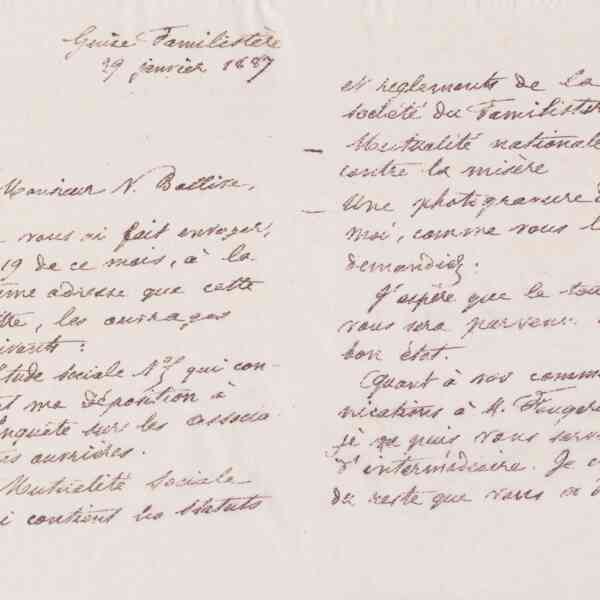 Guise Familistère
29 janvier 1887
Monsieur N.
vous ai fait envoyer,
19 de ce mois, à la
ême adresse que cette
ttre, les ouvrages
uivants :
Etude sociale Nº qui con-
ma déposition à
enquête sur les associa
ns ouvrières.
Mutualité sociale
i contient les statuts
et règlements de la
société du Familistère
— Mutualité nationale
contre la misère
— Une photogravure d
moi, comme vous l
demandiez.
J'espère que le tou
vous sera parvenu
bon état.
Quant à vos commu
nications à M.
je ne puis vous serv
d'intermédiaire. Je
du reste que vous